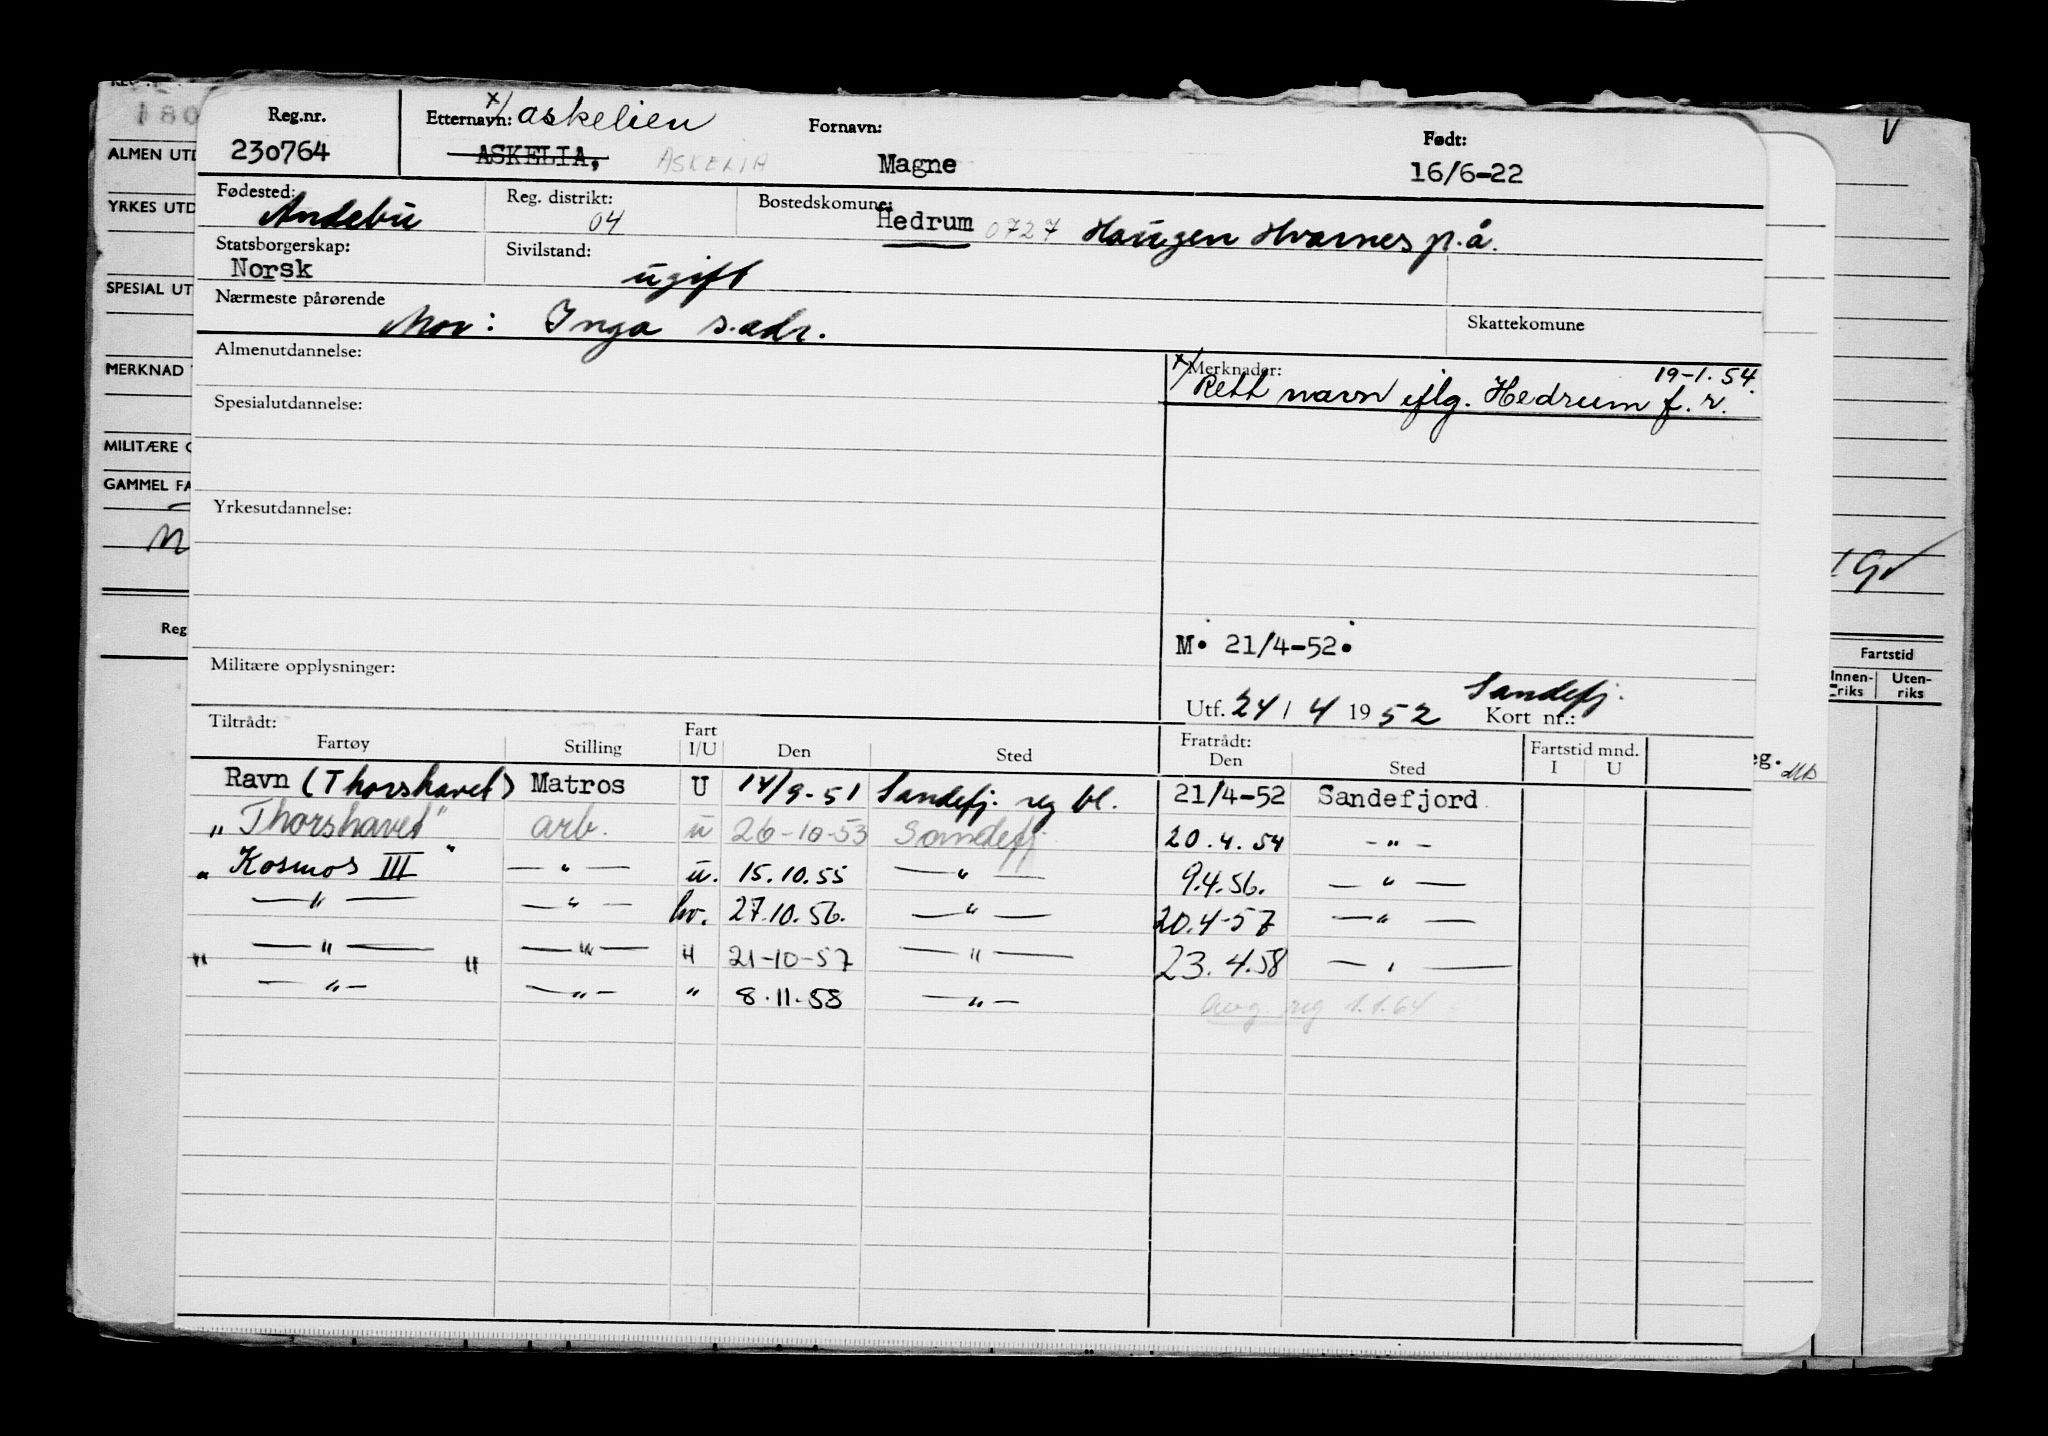 180
ALMEN UTD
YRKES UTD
SPESIAL UT
MERKNAD
MILITÆRE O
GAMMEL FA
Reg
Reg.nr. x/ Etternavn: Askelien Fornavn: Født:
230764 ASKELIA, ASKELIA Magne 16/6-22
Fødested: Andebu Reg. distrikt: 04 Bostedskomune: Hedrum 0727 Haugen Hvarnes p.å.
Statsborgerskap: Norsk Sivilstand: ugift
Nærmeste pårørende Mor: Inga s.adr. Skattekomune
Almenutdannelse: x/ Merknader: 19-1.54.
Rett navn iflg. Hedrum f.r.
Spesialutdannelse:
Yrkesutdannelse:
M. 21/4-52.
Militære opplysninger:
Utf. 24/4 1952 Kort nr.: Sandefj.
Tiltrådt: Fratrådt: Fartstid mnd.
Fartøy Stilling Fart I/U Den Sted Den Sted I U
Ravn (Thorshavet) Matros U 14/9-51 Sandefj. reg bl. 21/4-52 Sandefjord
"Thorshavet" arb. u 26-10-53 Sandefj. 20.4.54 -"-
"Kosmos III" -"- u. 15.10.55 -"- 9.4.56. -"-
-"- -"- hv. 27.10.56. -"- 20.4-57 -"-
" -"- " -"- " 21-10-57 -"- 23.4.58 -"-
-"- -"- " 8.11.58 -"- Avg reg 1.1.64
V
Fartstid
Innenriks Utenriks
eg.